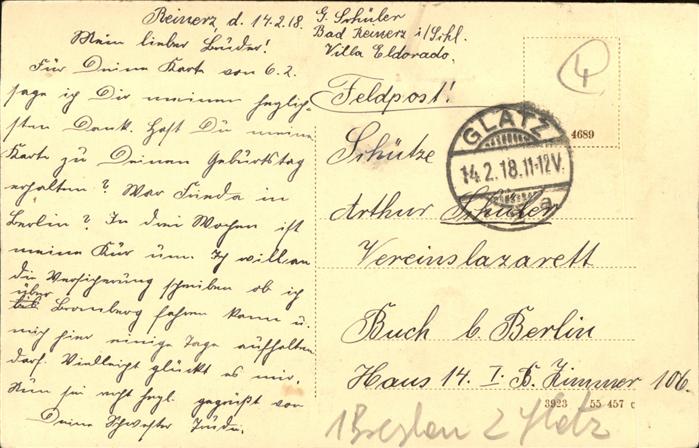 Reinerz, d. 14.2.18.
Mein lieber Bruder!
Für Deine Karte vom 6.2.
sage ich Dir meinen herzlich-
sten Dank. Hast Du meine
Karte zu Deinem Geburtstag
erhalten? War in
Berlin? In drei Wochen ist
meine Kur um. Ich will an
die Versicherung schreiben ob ich
über Bromberg fahren kann u.
mich hier einige Tage aufhalten
darf. Vielleicht glückt es mir.
Nun sei recht herzl. gegrüßt von
Deine Schwester
G. Schüler
Bad Reinerz i/Schl.
Villa Eldorado.
Feldpost!
4
4689
GLATZ
14.2.18.11-12V.
a
Schütze
Arthur Schüler
Vereinslazarett
Buch b. Berlin
Haus 14. I. B. Zimmer 106.
3923 55 457 c
1 Breslau 2 Glatz